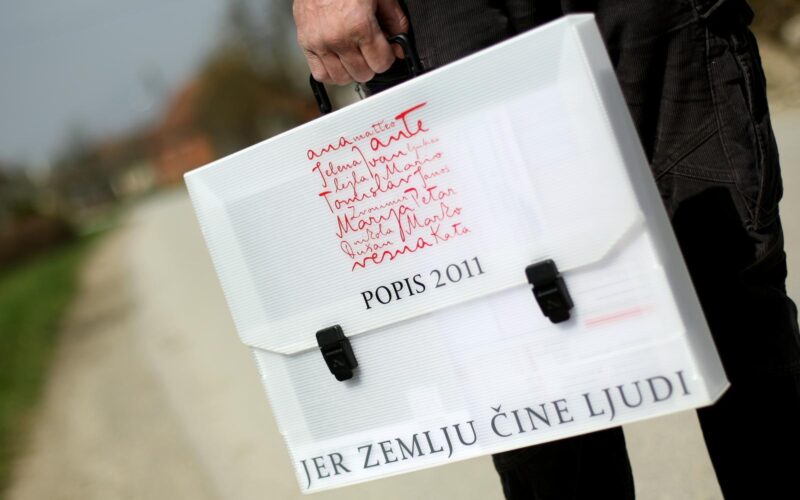 ana matteo Ante
Jelena Ivan ljubica
lejla Mario
Tomislav Janos
Zvonimir
Marija Petar
nikola Marko
Dušan
vesna Kata
POPIS 2011
JER ZEMLJU ČINE LJUDI